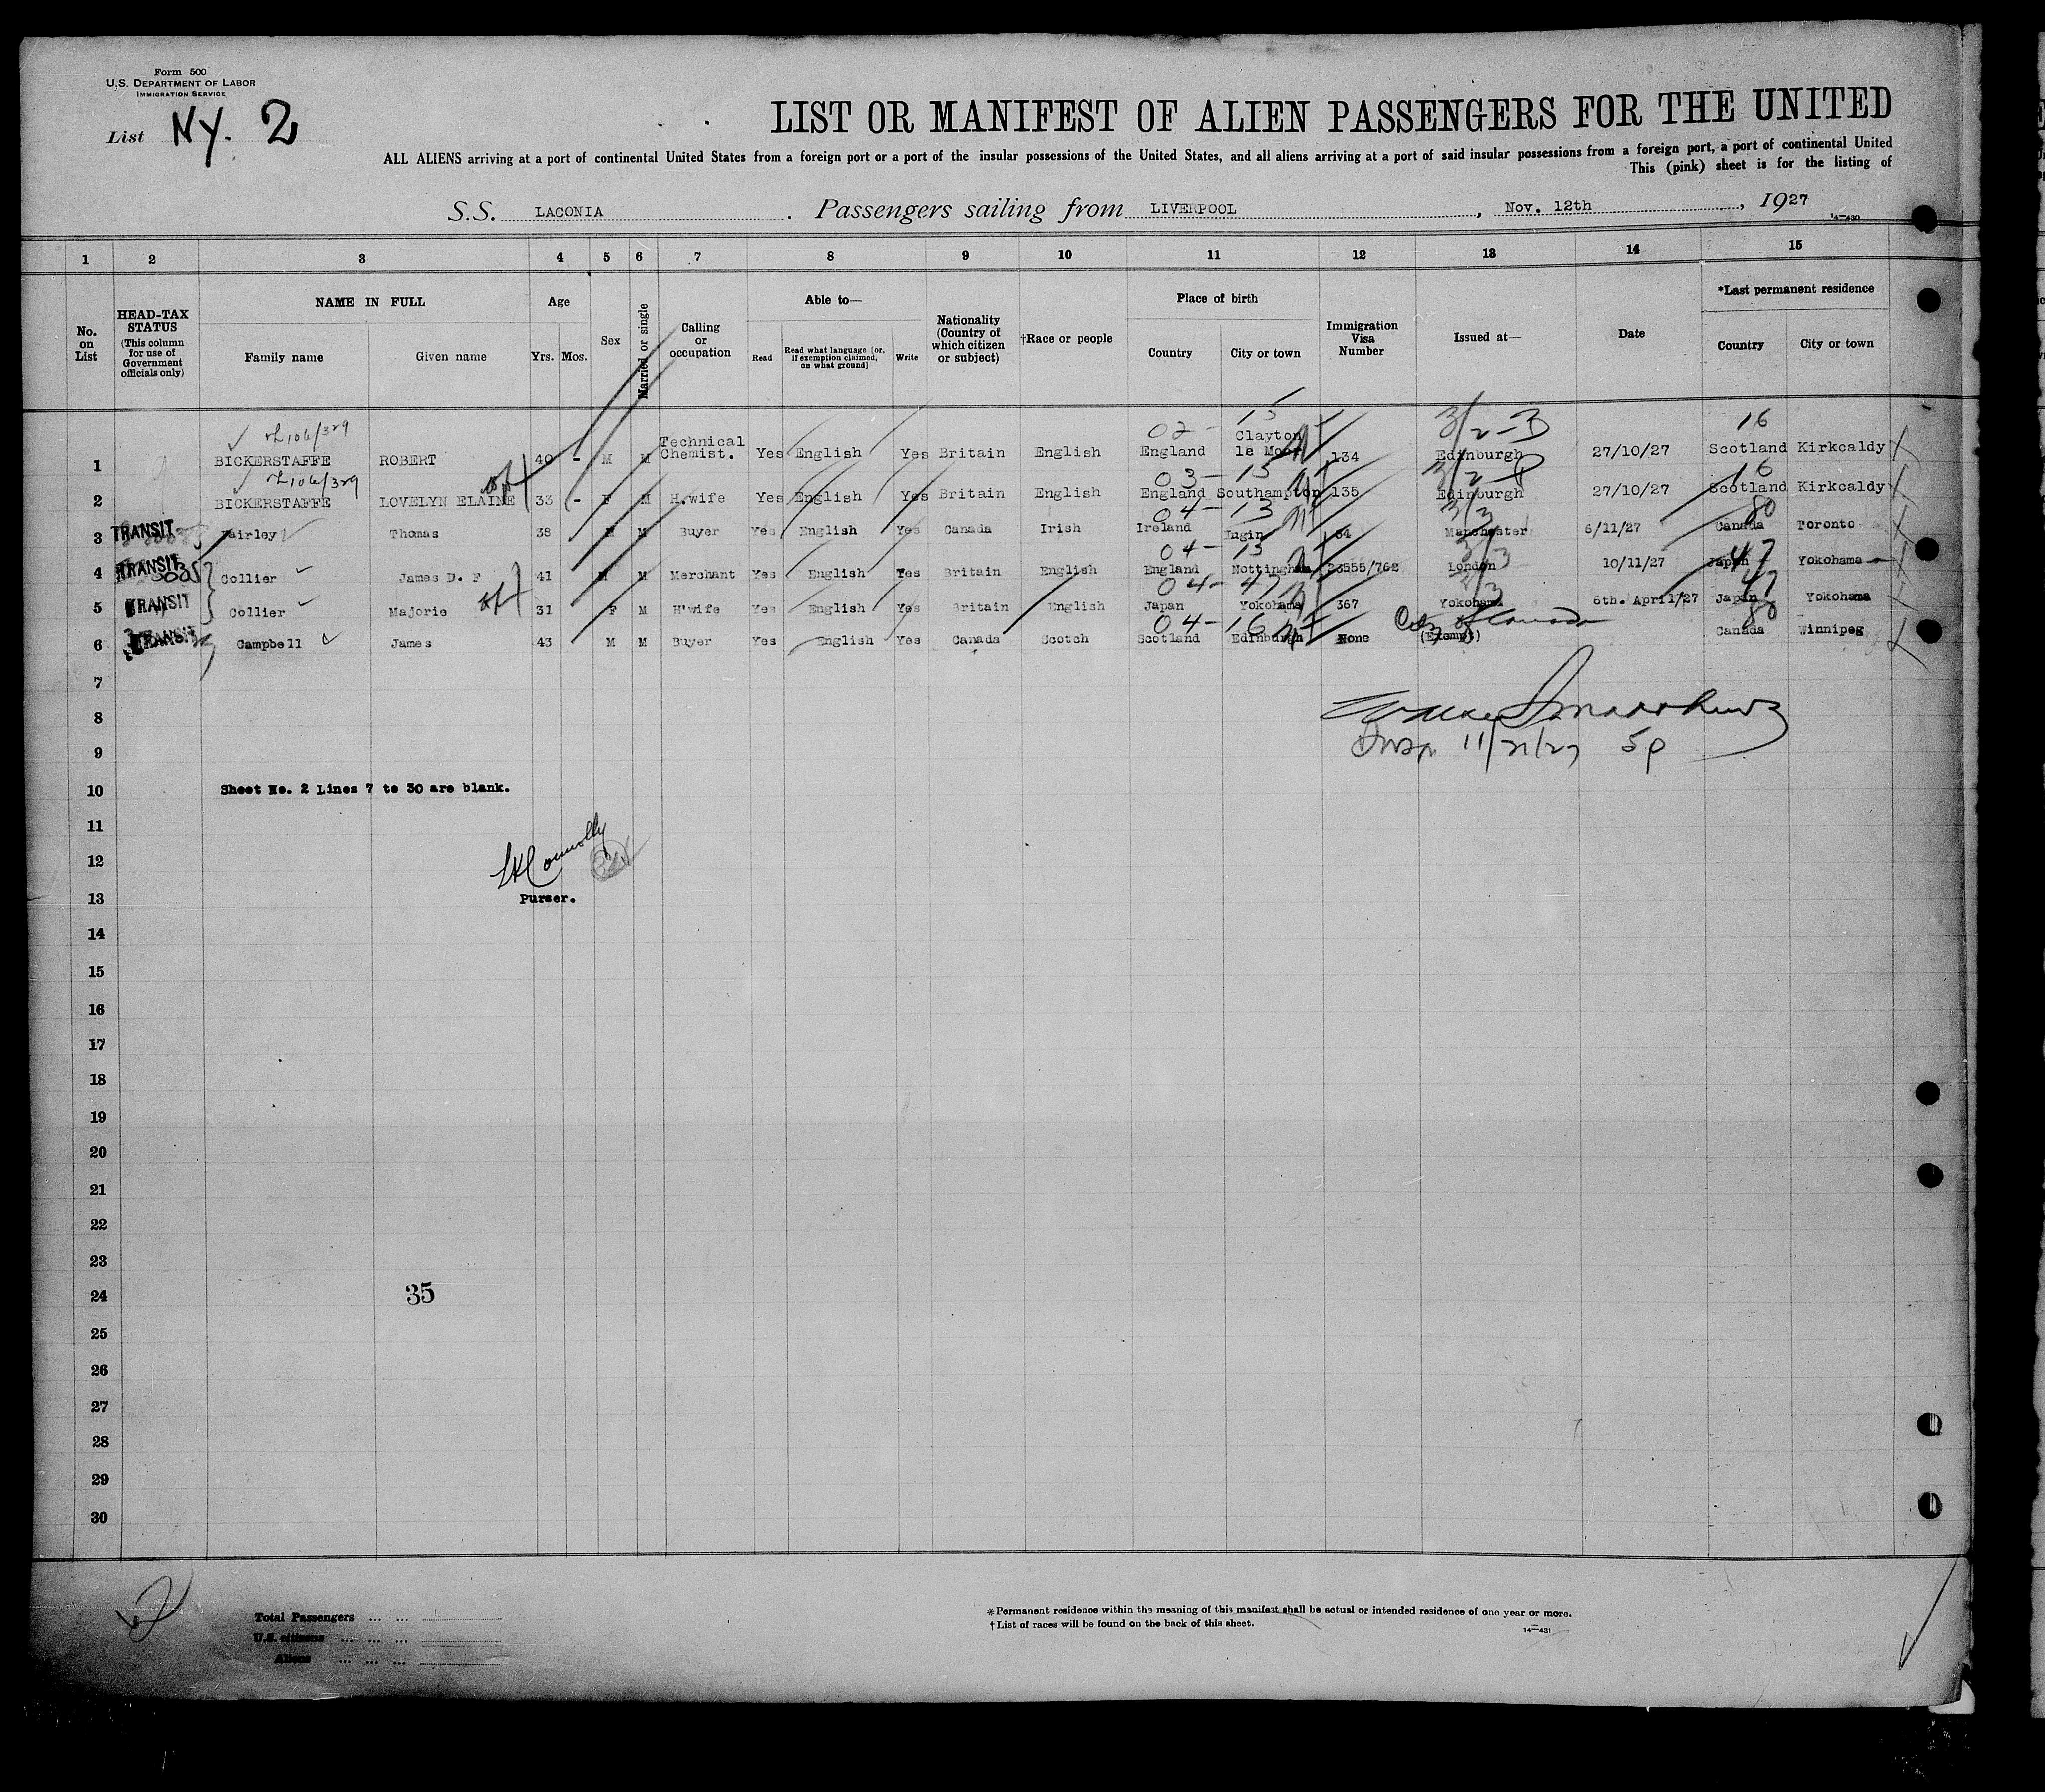 Form 500
U.S. DEPARTMENT OF LABOR
IMMIGRATION SERVICE
List NY. 2
LIST OR MANIFEST OF ALIEN PASSENGERS FOR THE UNITED
ALL ALIENS arriving at a port of continental United States from a foreign port or a port of the insular possessions of the United States, and all aliens arriving at a port of said insular possessions from a foreign port, a port of continental United
This (pink) sheet is for the listing of
S.S. LACONIA . Passengers sailing from LIVERPOOL , Nov. 12th , 1927
14—430
1 2 3 4 5 6 7 8 9 10 11 12 13 14 15
No. on List
HEAD-TAX STATUS (This column for use of Government officials only)
NAME IN FULL
Family name Given name
Age
Yrs. Mos.
Sex
Married or single
Calling or occupation
Able to—
Read
Read what language [or, if exemption claimed, on what ground]
Write
Nationality (Country of which citizen or subject)
†Race or people
Place of birth
Country City or town
Immigration Visa Number
Issued at—
Date
*Last permanent residence
Country City or town
106/329 02- 15 3/2-B 16
1 BICKERSTAFFE ROBERT 40 - M M Technical Chemist. Yes English Yes Britain English England Clayton le Moor 134 Edinburgh 27/10/27 Scotland Kirkcaldy
106/329 03- 15 16
2 BICKERSTAFFE LOVELYN ELAINE 33 - F M H.wife Yes English Yes Britain English England Southampton 135 Edinburgh 27/10/27 Scotland Kirkcaldy
04- 13 3/3 80
3 TRANSIT Fairley Thomas 38 M M Buyer Yes English Yes Canada Irish Ireland 64 Manchester 5/11/27 Canada Toronto
04- 15 3/3 47
4 TRANSIT Collier James D. F 41 M M Merchant Yes English Yes Britain English England Nottingham 23555/762 London 10/11/27 Japan Yokohama
04- 47 3/3 47
5 TRANSIT Collier Majorie 31 F M H'wife Yes English Yes Britain English Japan Yokohama 367 Yokohama 6th. April/27 Japan Yokohama
04- 16 of Canada 80
6 TRANSIT Campbell James 43 M M Buyer Yes English Yes Canada Scotch Scotland Edinburgh None (Exempt) Canada Winnipeg
7
8
9
11/21/27 5p
10 Sheet No. 2 Lines 7 to 30 are blank.
11
12
Connolly
13 Purser.
14
15
16
17
18
19
20
21
22
23
24 35
25
26
27
28
29
30
Total Passengers ... ...
U.S. citizens ... ... ...
Aliens ... ... ...
*Permanent residence within the meaning of this manifest shall be actual or intended residence of one year or more.
†List of races will be found on the back of this sheet.
14—431